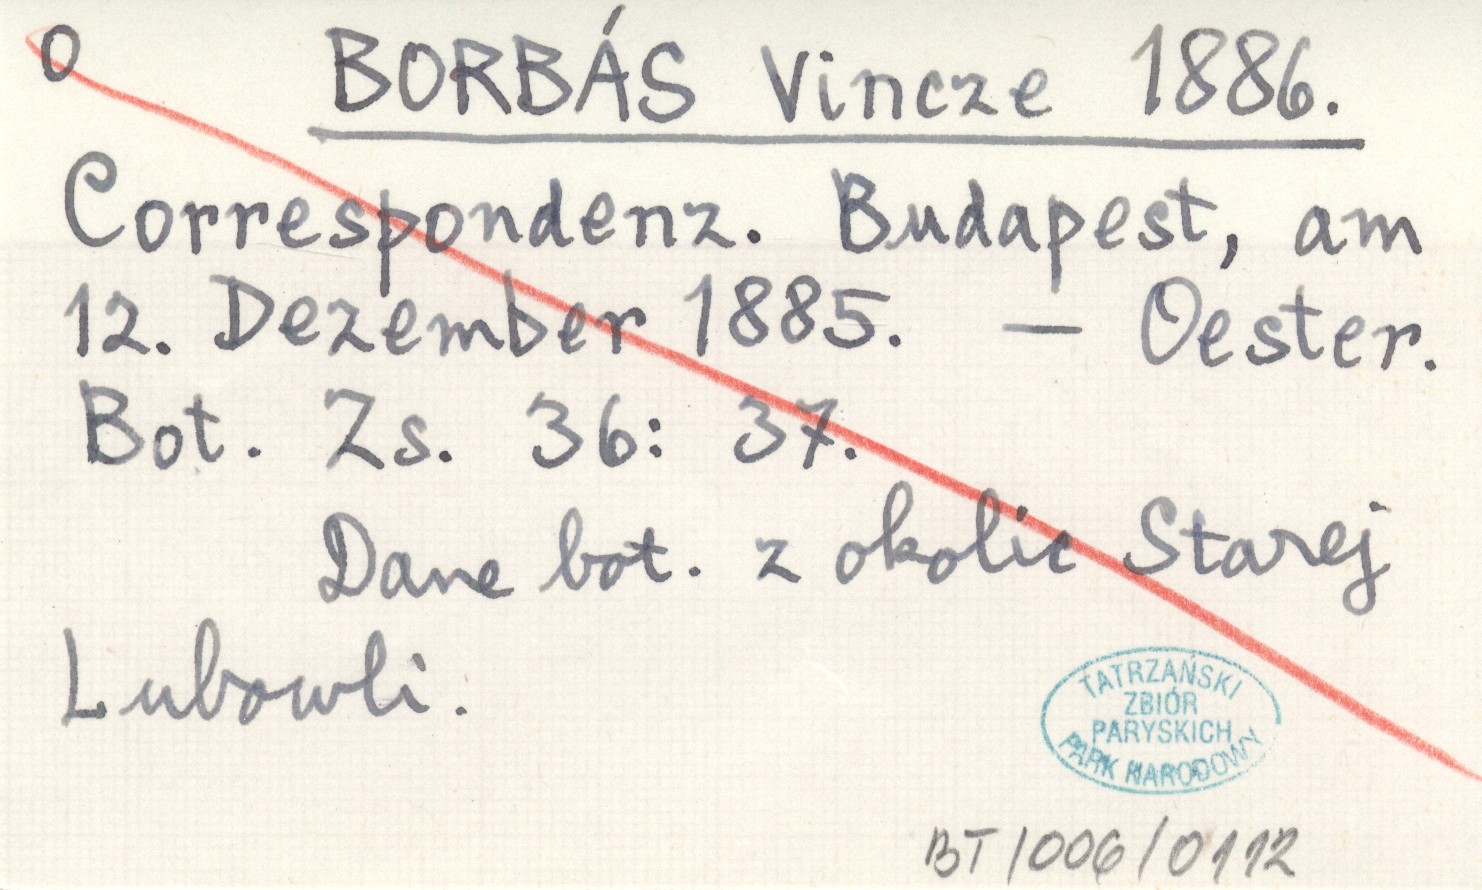 O BORBÁS Vincze 1886.
Correspondenz. Budapest, am
12. Dezember 1885. — Oester.
Bot. Zs. 36: 37.
Dane bot. z okolic Starej
Lubowli.
TATRZAŃSKI
ZBIÓR
PARYSKICH
PARK NARODOWY
BT/006/0112